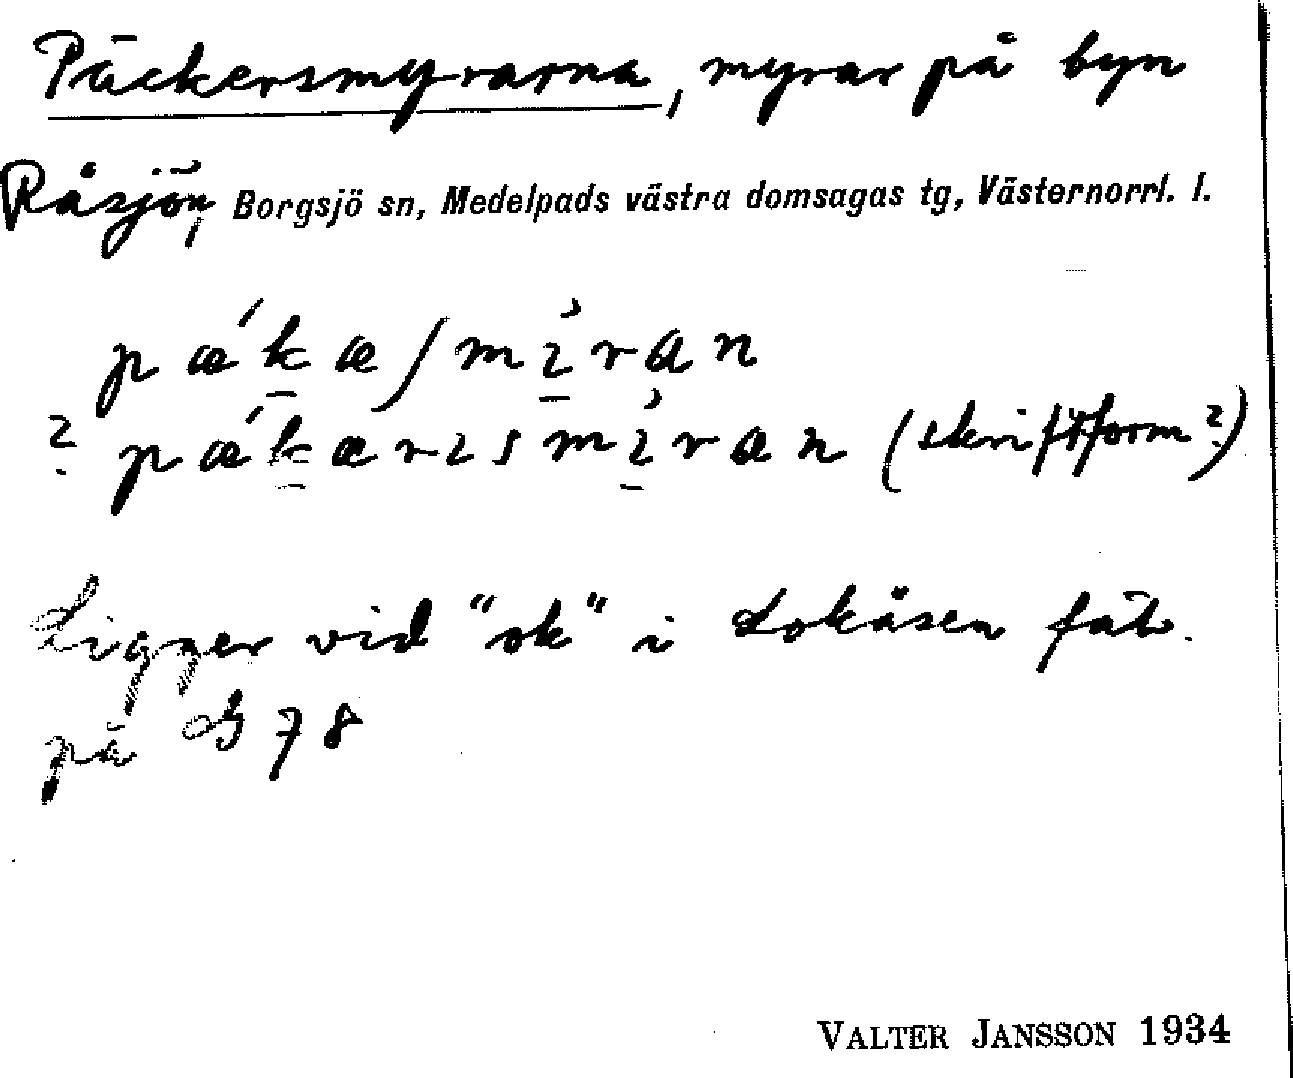 Päckersmyrarna, myrar på byn
Råsjön, Borgsjö sn, Medelpads västra domsagas tg, Västernorrl. l.
pǽkæʃmìran
? pǽkærısmìran (skriftform?)
Ligger vid "ok" i Lokåsen fäb.
på G 78
VALTER JANSSON 1934